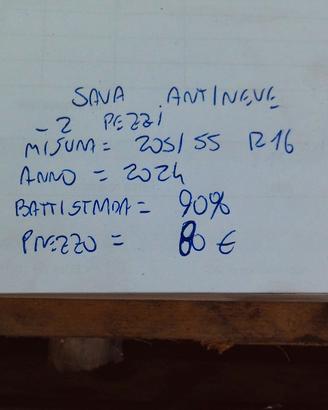 SAVA ANTINEVE
- 2 PEZZI
MISURA = 205/55 R16
ANNO = 2024
BATTISTRADA = 90%
PREZZO = 80 €